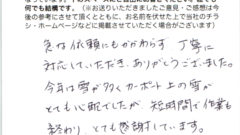 何でも結構です。(※お送りいただきましたご意見・ご感想は今
後の参考にさせて頂くとともに、お名前を伏せた上で当社のチラ
シ・ホームページなどに掲載させていただく場合がございます。)
急な依頼にもかかわらず 丁寧に
対応していただき、ありがとうございました。
今年は雪が多く カーポート上の雪が
とても心配でしたが、短時間で作業も
終わり、とても感謝しています。